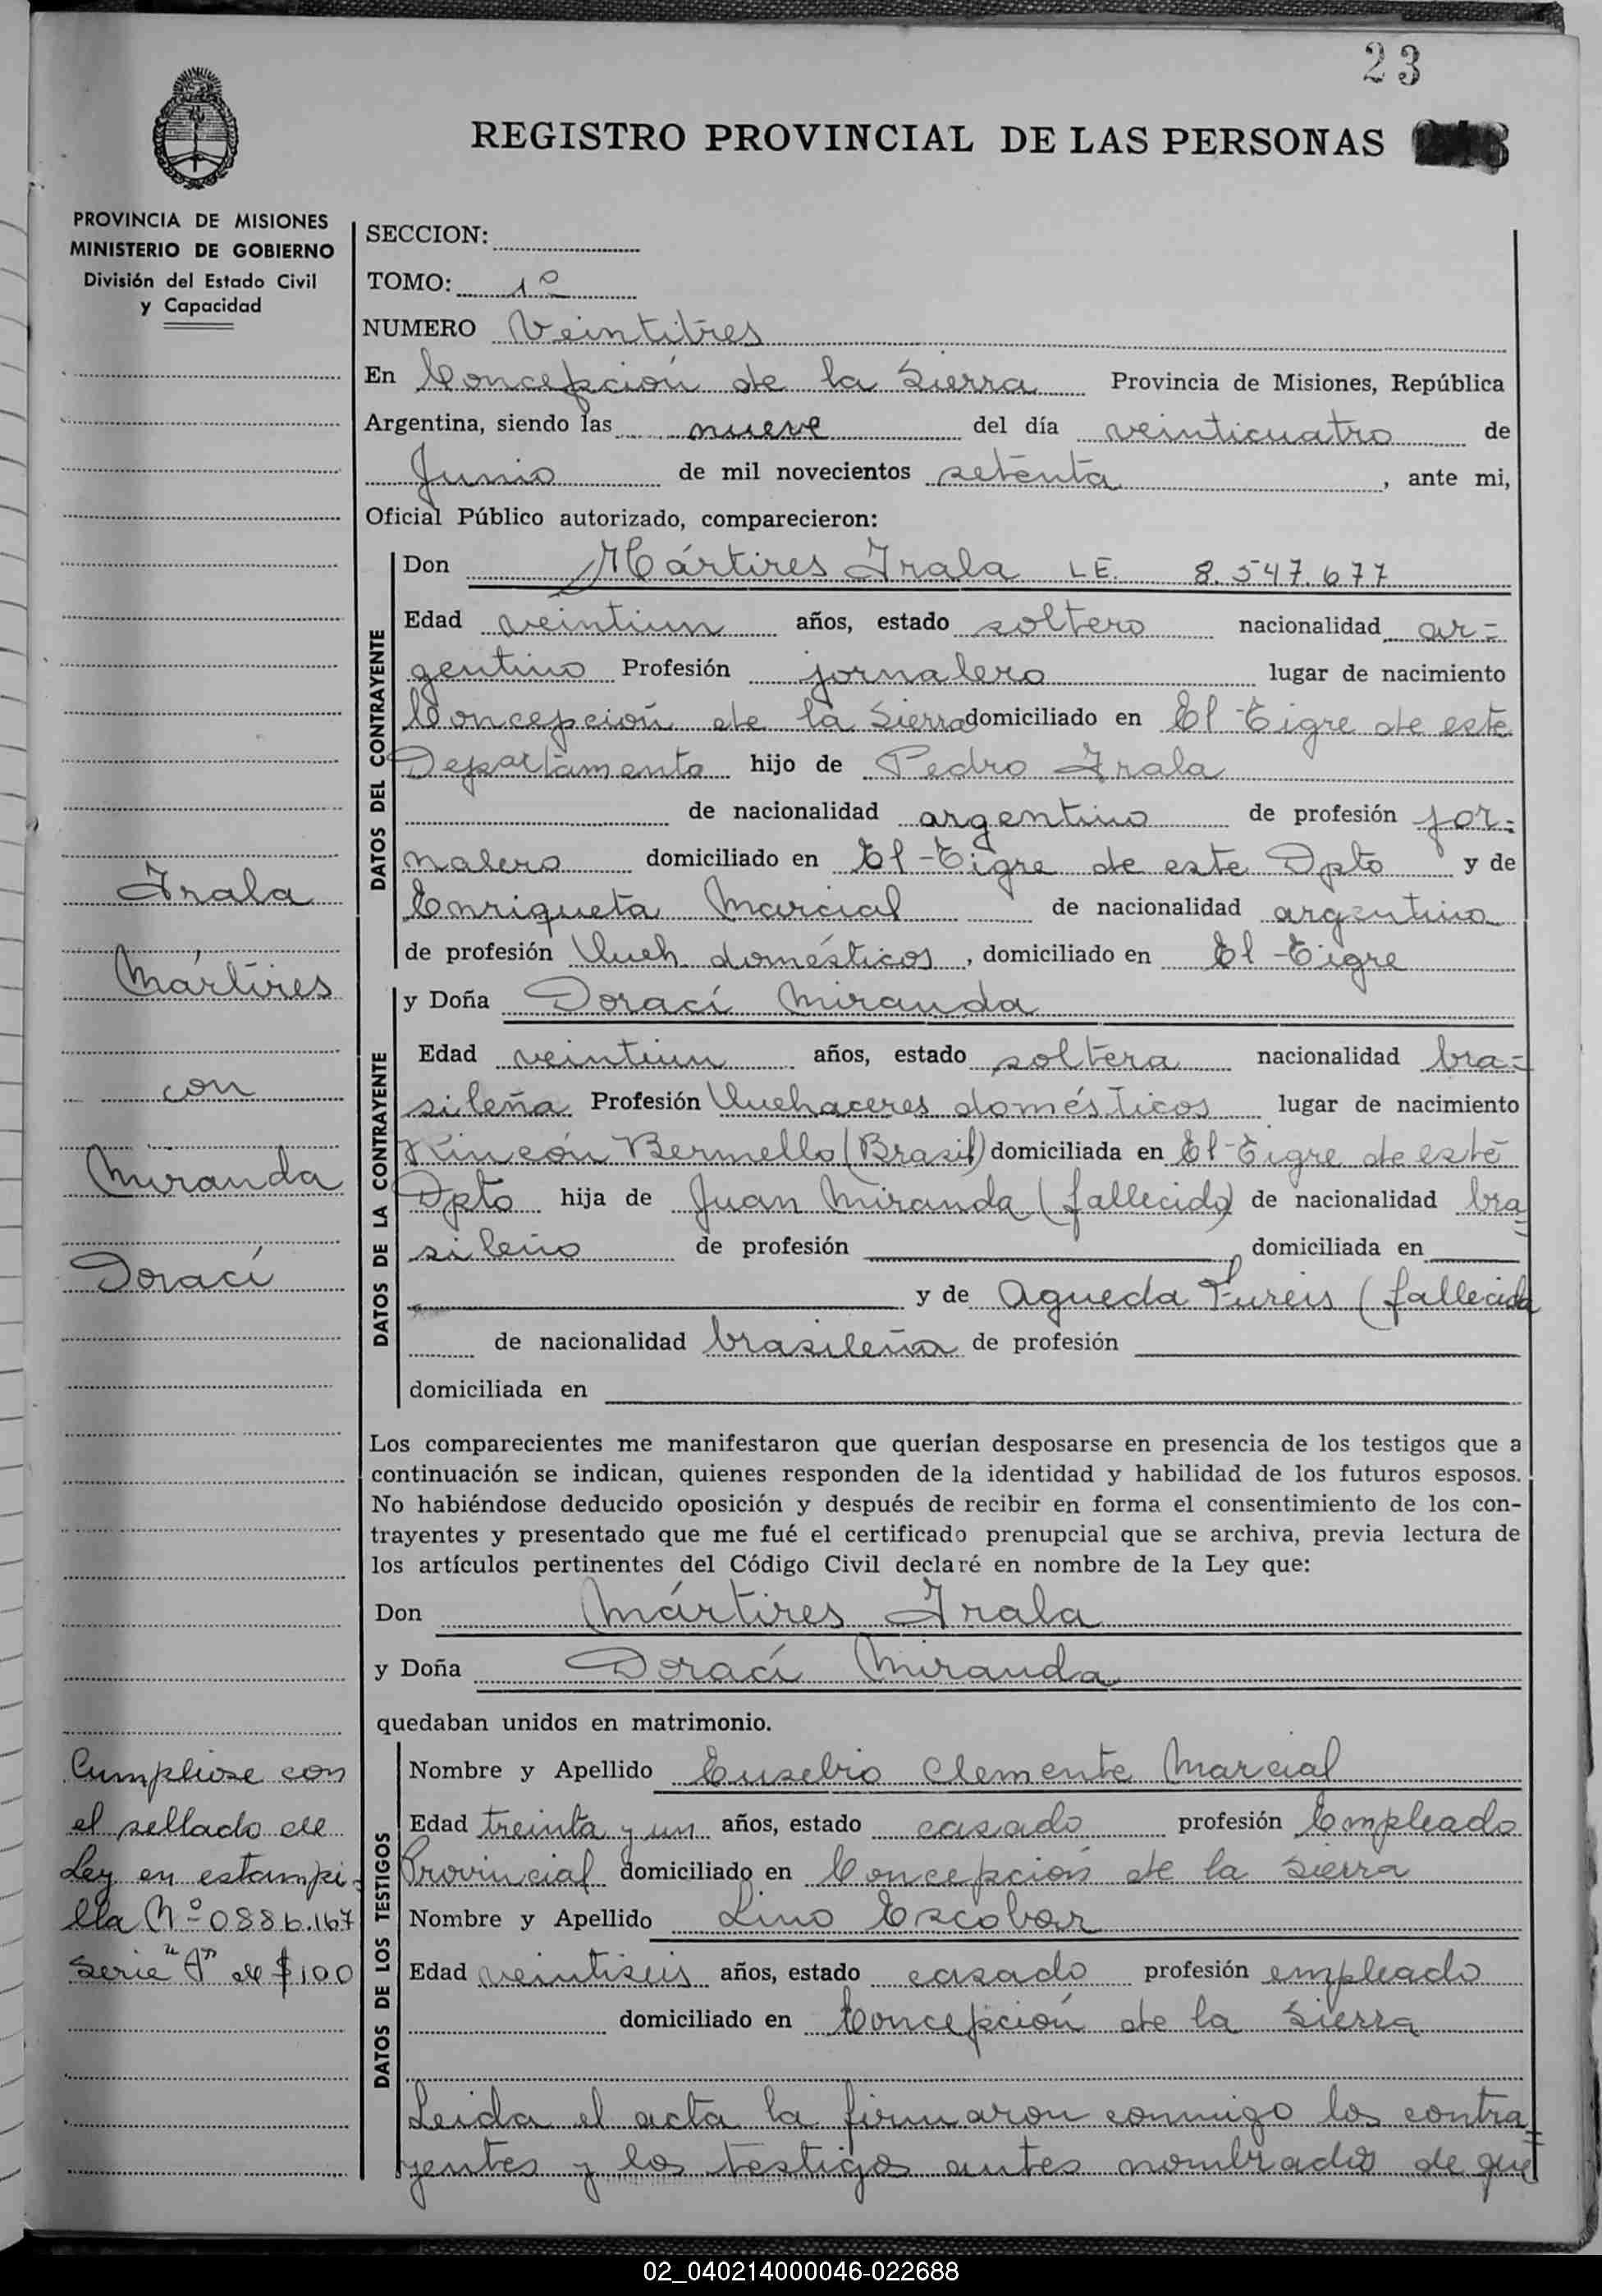 23
REGISTRO PROVINCIAL DE LAS PERSONAS
PROVINCIA DE MISIONES
MINISTERIO DE GOBIERNO
División del Estado Civil
y Capacidad
SECCION:
TOMO: 1º
NUMERO Veintitres
En Concepción de la Sierra Provincia de Misiones, República
Argentina, siendo las nueve del día veinticuatro de
Junio de mil novecientos setenta, ante mi,
Oficial Público autorizado, comparecieron:
DATOS DEL CONTRAYENTE
Don Mártires Irala L.E. 8.547.677
Edad veintiun años, estado soltero nacionalidad ar=
gentino Profesión jornalero lugar de nacimiento
Concepción de la Sierra domiciliado en El Tigre de este
Departamento hijo de Pedro Irala
de nacionalidad argentino de profesión jor=
nalero domiciliado en El Tigre de este Dpto y de
Enriqueta Marcial de nacionalidad argentina
de profesión Queh. domésticos, domiciliado en El Tigre
DATOS DE LA CONTRAYENTE
y Doña Doraci Miranda
Edad veintiun años, estado soltera nacionalidad bra=
sileña Profesión Quehaceres domésticos lugar de nacimiento
Rincón Bermello (Brasil) domiciliada en El Tigre de este
Dpto hija de Juan Miranda (fallecido) de nacionalidad bra=
sileño de profesión , domiciliada en
y de Agueda Fureis (fallecida
de nacionalidad brasileña de profesión
domiciliada en
Los comparecientes me manifestaron que querían desposarse en presencia de los testigos que a
continuación se indican, quienes responden de la identidad y habilidad de los futuros esposos.
No habiéndose deducido oposición y después de recibir en forma el consentimiento de los con-
trayentes y presentado que me fué el certificado prenupcial que se archiva, previa lectura de
los artículos pertinentes del Código Civil declaré en nombre de la Ley que:
Don Mártires Irala
y Doña Doraci Miranda
quedaban unidos en matrimonio.
DATOS DE LOS TESTIGOS
Nombre y Apellido Eusebio Clemente Marcial
Edad treinta y un años, estado casado profesión Empleado
Provincial domiciliado en Concepción de la Sierra
Nombre y Apellido Lino Escobar
Edad veintiseis años, estado casado profesión empleado
domiciliado en Concepción de la Sierra
Leida el acta la firmaron conmigo los contra=
yentes y los testigos antes nombrados de que
Irala
Mártires
con
Miranda
Doraci
Cumpliose con
el sellado de
Ley en estampi=
lla Nº 0886.167
Serie "A" de $100
02_040214000046-022688